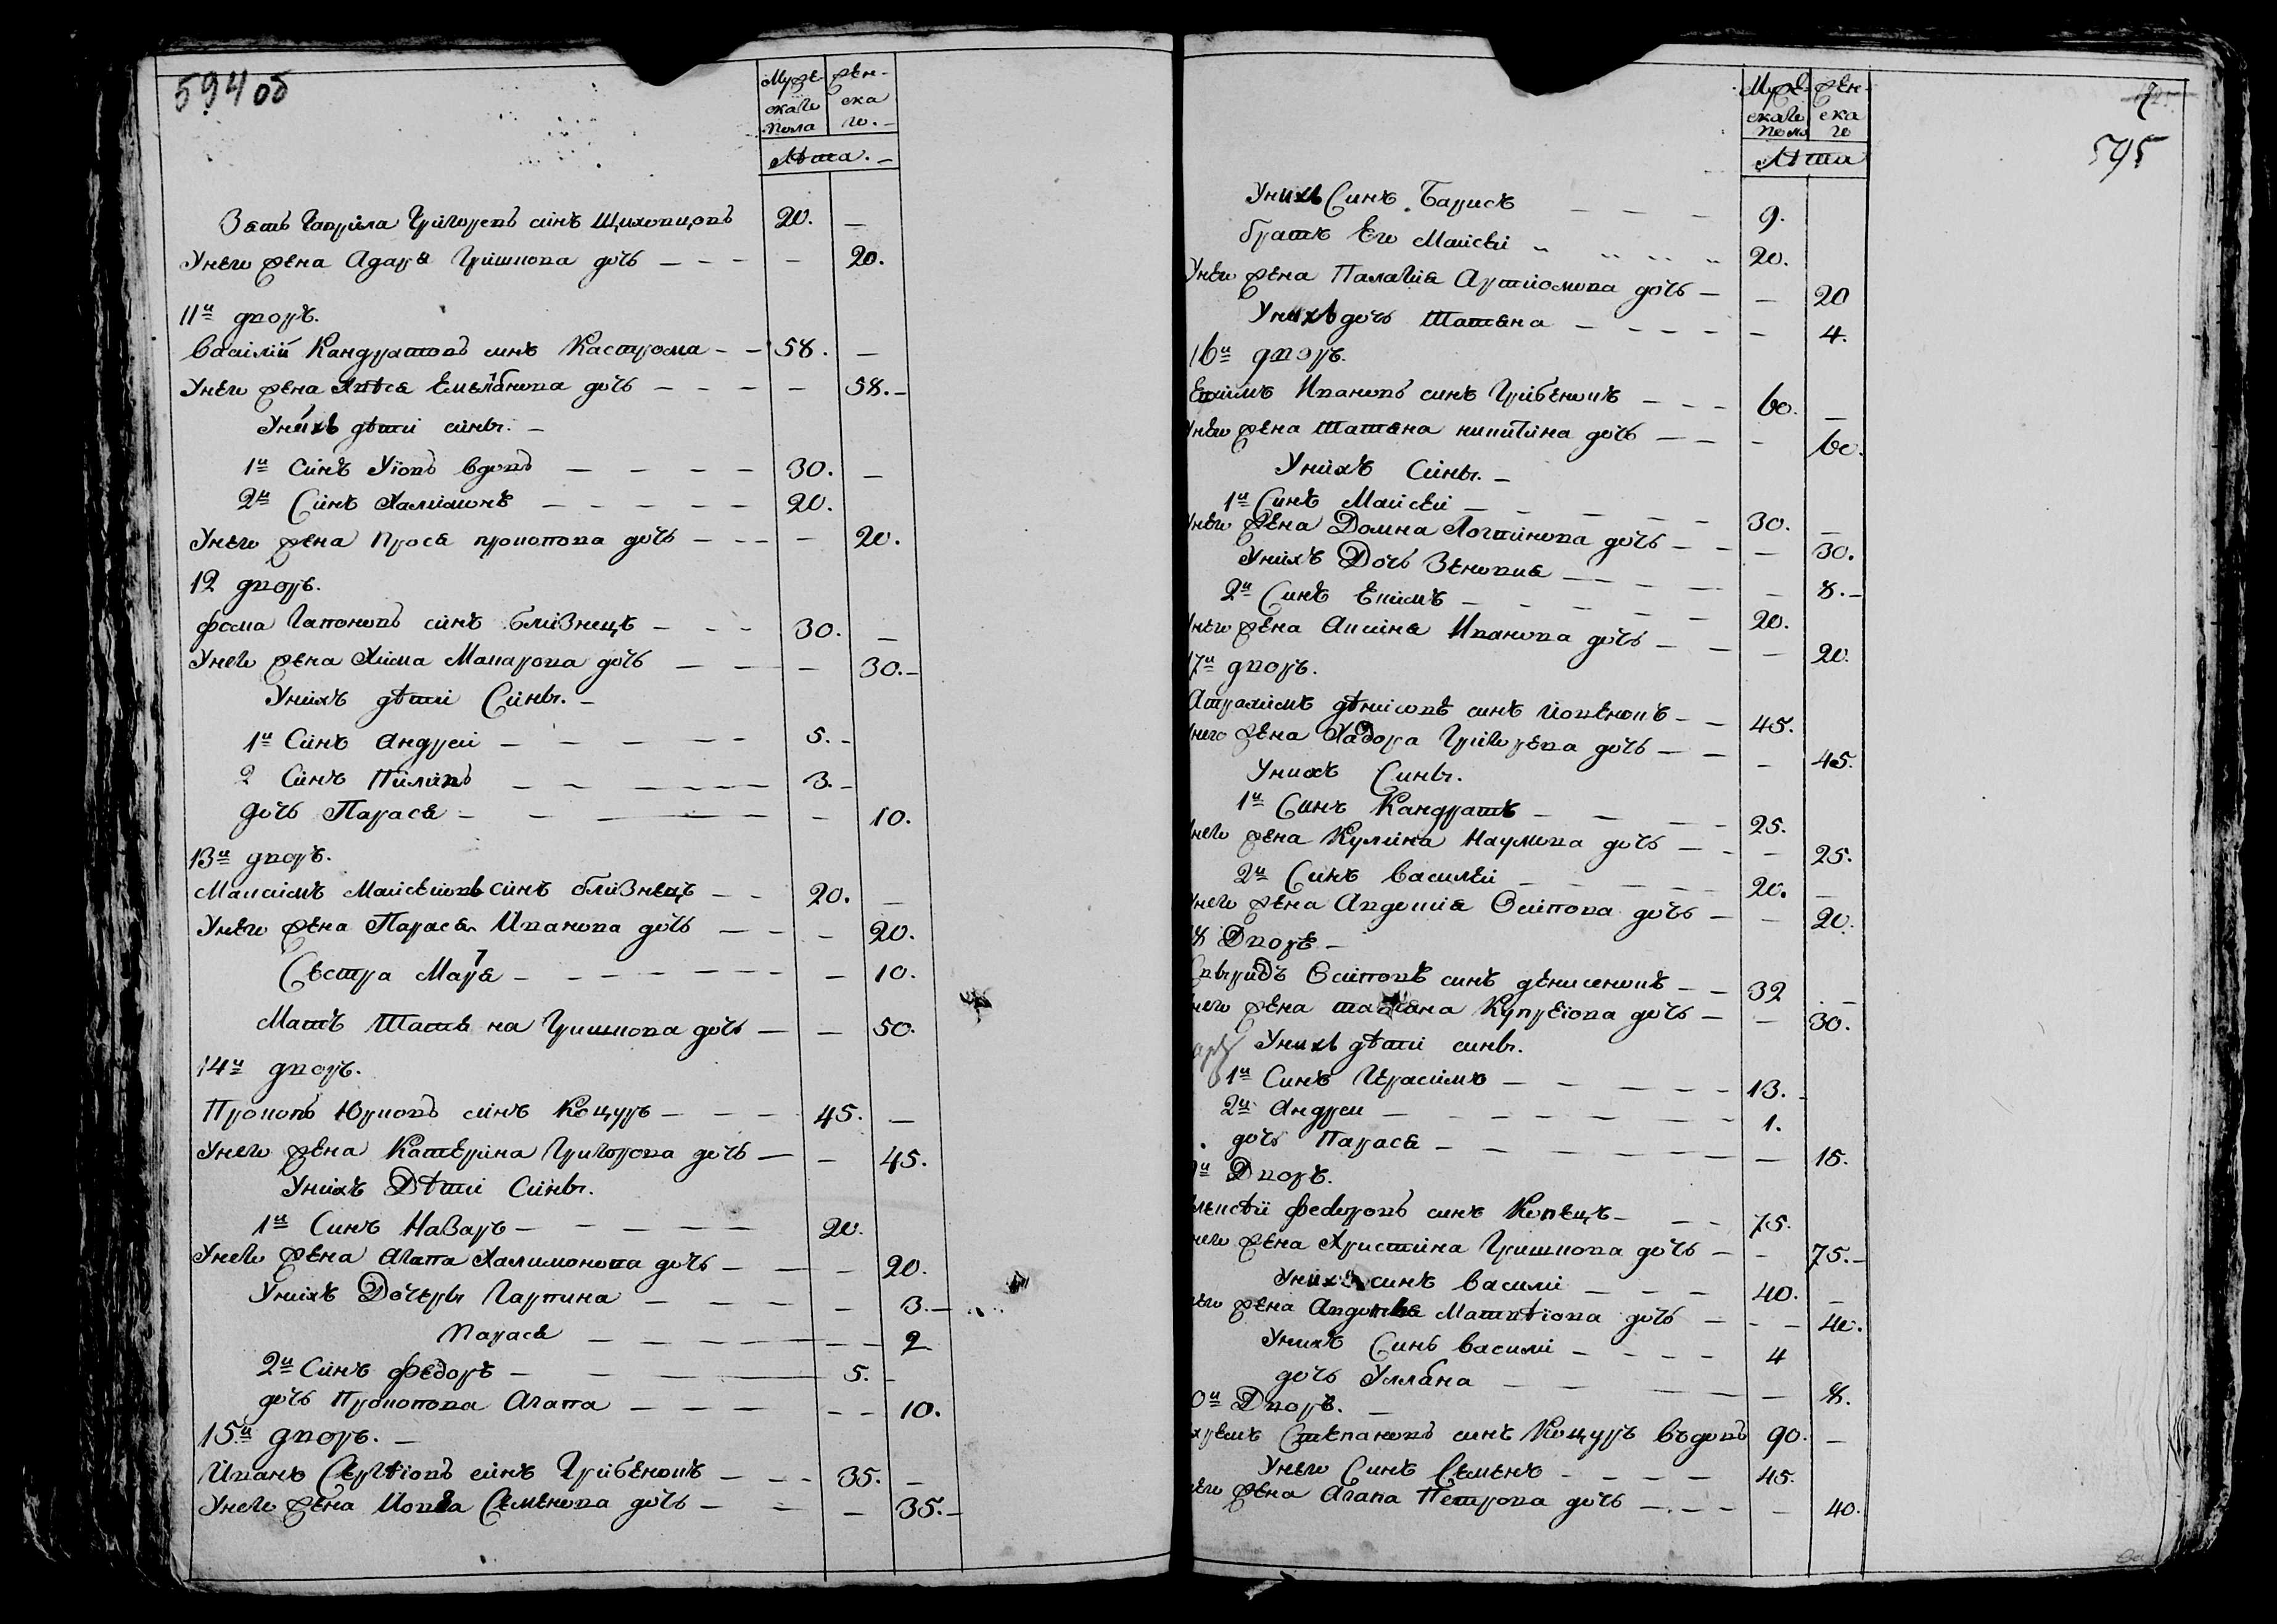 594 об
Мужескаго пола Женскаго.
Лѣта.
Зять Гаврила Григоревъ синъ Щиховцовъ 20. —
Унего жена Адаря Гришкова дочь — 20.
11й дворъ.
Василій Кандратовъ синъ Кастрома 58. —
Унего жена Хвѣся Емелянова дочь — 58.
Унихъ дѣти сины.
1й Синъ Уіовъ вдовъ 30. —
2й Синъ Халимонъ 20.
Унего жена Прося прокопова дочь — 20.
12 дворъ.
фома Гапоновъ синъ близнецъ 30. —
Унего жена Хима Макарова дочь — 30.
Унихъ дѣти Сины.
1й Синъ Андреи 5.
2 Синъ Пилипъ 3.
дочь Парася — 10.
13й дворъ.
Максимъ Маисеювъ синъ близнецъ 20. —
Унего жена Парася Иванова дочь — 20.
Сестра Маря — 10.
Матъ Татяна Гришкова дочь — 50.
14й дворъ.
Прокопъ Юрковъ синъ Коцуръ 45. —
Унего жена Катерина Григорова дочь — 45.
Унихъ Дѣти Сины.
1й Синъ Назаръ 20.
Унего жена Агапа Халимонова дочь — 20.
Унихъ Дочеры Гарпина — 3.
Парася — 2
2й Синъ федоръ 5.
дочь Прокопова Агапа — 10.
15й дворъ.
Иванъ Сергѣіовъ синъ Грибенокъ 35. —
Унего жена Иовья Семенова дочь — 35.
7
595
Мужескаго пола Женскаго
Лѣта
Унихъ Синъ Барисъ 9.
братъ Его Маисеи 20.
Унего жена Палагія Артіомова дочь — 20
Унихъ дочь Татяна — 4.
16й дворъ.
Екимъ Ивановъ синъ Грибенокъ 60. —
Унего жена Татяна никитина дочь — 60.
Унихъ Сины.
1й Синъ Маисеи 30. —
Унего жена Домна Логвинова дочь — 30.
Унихъ Дочь Зеновия — 8.
2й Синъ Екимъ 20.
Унего жена Аксиня Иванова дочь — 20.
17й дворъ.
дѣнисовъ синъ 45.
Унего жена Хадора Григорева дочь — 45.
Унихъ Сины.
1й Синъ Кандратъ 25.
Унего жена Кулина Наумова дочь — 25.
2й Синъ Василеи 20. —
Унего жена Авдокия Осипова дочь — 20.
18 Дворъ
Свыридъ Осиповъ синъ денисенокъ 32 —
Унего жена татяна Купреіова дочь — 30.
Унихъ дѣти сины.
1й Синъ Герасимъ 13.
2й Андреи 1.
дочь Парася — 15.
й Дворъ.
лексѣи федоровъ синъ Копецъ 75.
него жена Христина Гришкова дочь — 75.
Унихъ синъ васили 40. —
него жена Авдотья Матвѣіова дочь — 40.
Унихъ Синъ васили 4
дочь Улляна — 8.
0й Дворъ.
хремъ Степановъ синъ Коцуръ въдовъ 90. —
Унего Синъ Семенъ 45.
него жена Агапа Петрова дочь — 40.